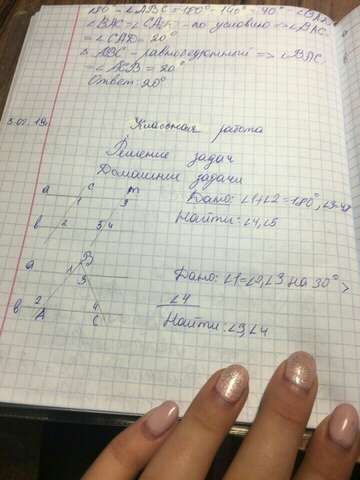 180° - ∠ABC = 180° - 140° = 40° - ∠BAD
∠BAC = ∠CAD - по условию => ∠BAC
= ∠CAD = 20°
△ ABC - равнобедренный => ∠BAC
= ∠ACB = 20°
Ответ: 20°
Классная работа
Решение задач
Домашние задачи
a c m
1 3
b 2 5 4
Дано: ∠1+∠2=180°, ∠3=
Найти: ∠4, ∠5
a B
1 3
b 2 A 4 C
Дано: ∠1=∠2, ∠3 на 30° >
∠4
Найти: ∠3, ∠4